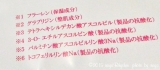 ※1 フラーレン（保湿成分）
※2 グリアジリン（整肌成分）
※3 テトラヘキシルデカン酸アスコルビル（製品の抗酸化）
※4 3-O-エチルアスコルビン酸（製品の抗酸化）
※5 パルミチン酸アスコルビルリン酸3Na（製品の抗酸化）
※6 トコフェリルリン酸Na（製品の抗酸化）